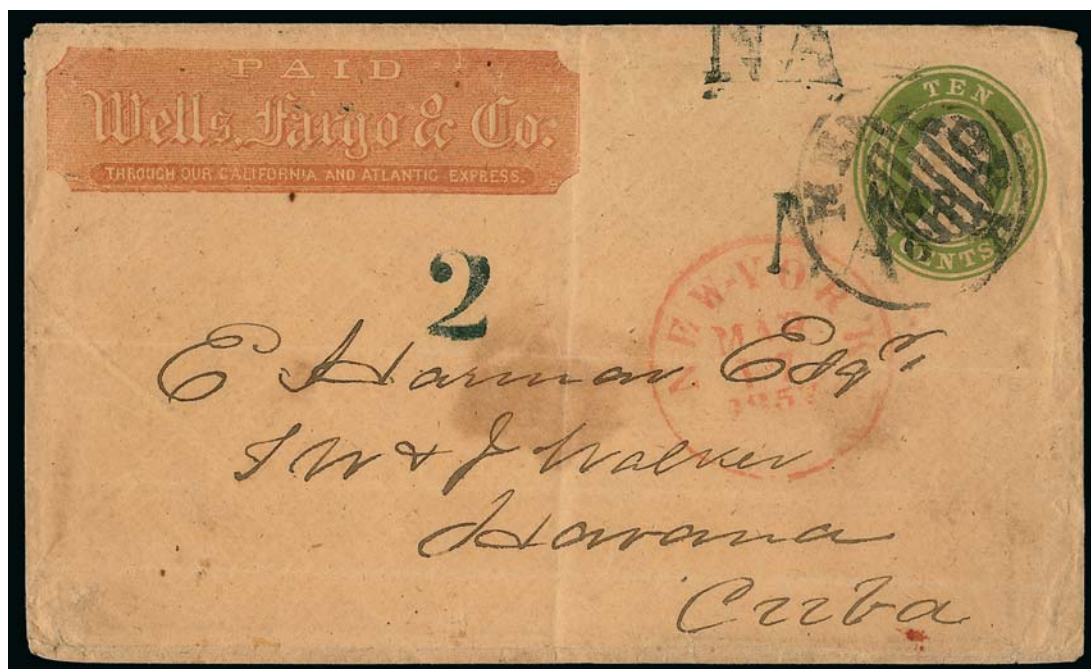 PAID
Wells, Fargo & Co:
THROUGH OUR CALIFORNIA AND ATLANTIC EXPRESS.
NA
TEN
CENTS
NEW-YORK
MAR
185
2
E Harman Esqr
J W & J Walker
Havana
Cuba